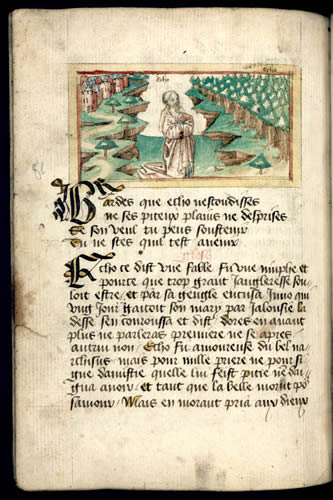 echo
Echo
86
Gardes que echo nescondisses
ne ses piteux plains ne desprises
Se son veul tu peus soustenir
Tu ne sces quil test avenir
Echo ce dist vne fable fu vne nimphe et
pource que trop grant Jangleresse sou
loit estre / et par sa gengle encusa Juno qui
vng Jour gaitoit son mary par Jalousie la
desse sen couroussa et dist / dores en auant
plus ne parleras premiere ne se apres
autrui non / Echo fu amoureuse du bel na
rchisus / mais pour mille priere ne pour si
gne damistie quelle lui feist pitie ne dai
gna auoir / et tant que la belle morut po
samour / Mais en morant pria aux dieux